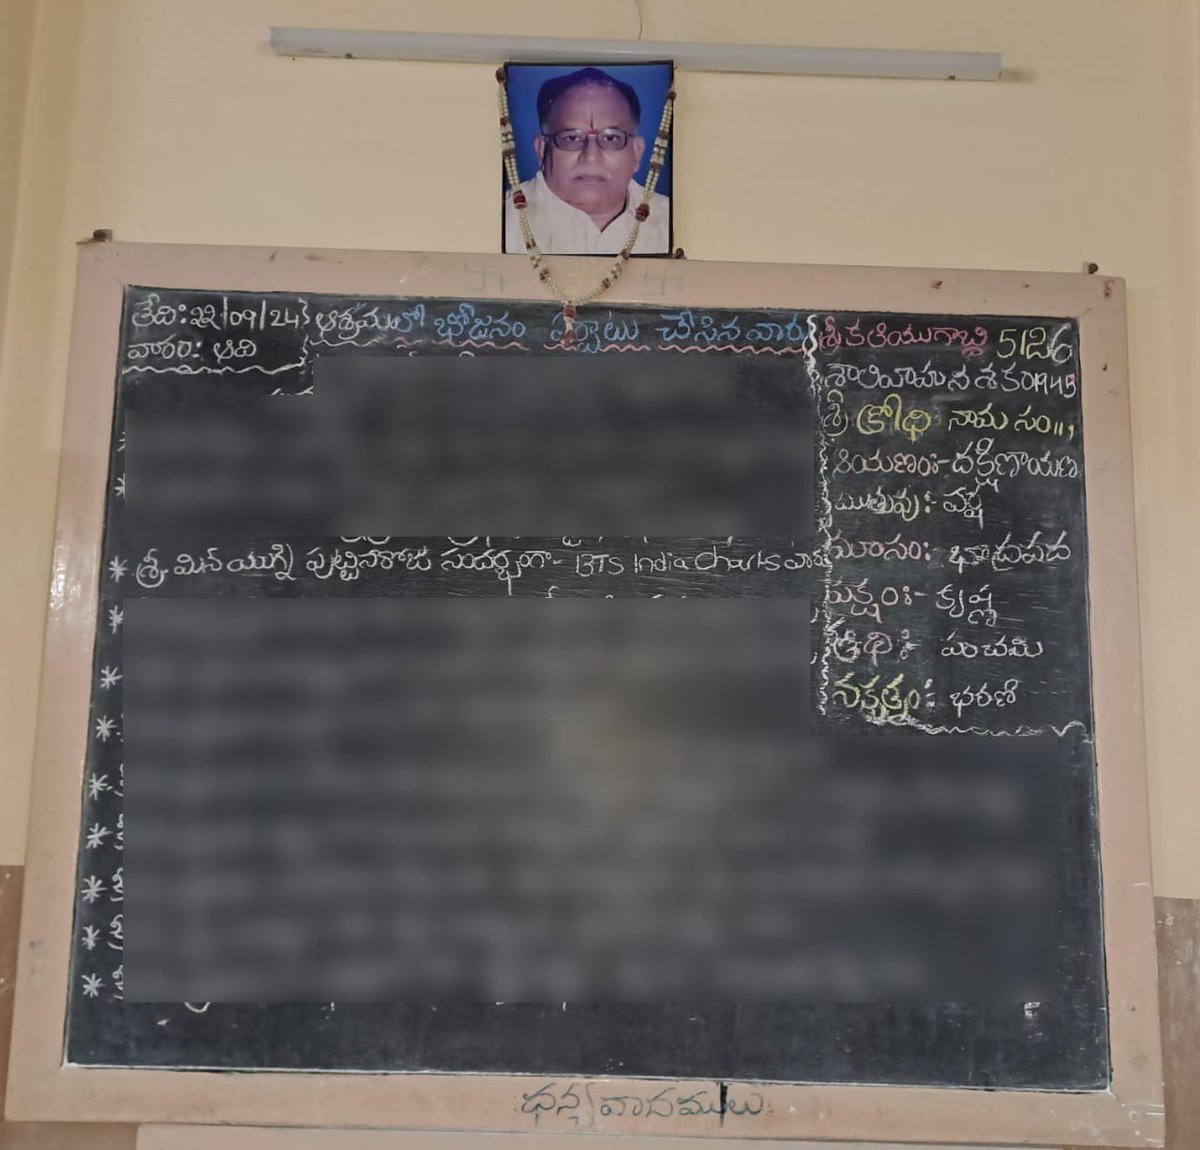 తేది: 22/09/24
వారం: ఆది
ఆశ్రమంలో భోజనం ఏర్పాటు చేసినవారు
* శ్రీ. మిన్ యుoగ్ని పుట్టినరోజు సందర్భంగా - BTS India Charts వారు
శ్రీ కలియుగాబ్ది 5126
శాలివాహన శకం 1945
శ్రీ క్రోధి నామ సం
దక్షిణాయణ
ఋతువు :- వర్ష
మాసం: భాద్రపద
పక్షం :- కృష్ణ
తిథి :- పంచమి
నక్షత్రం :- భరణి
ధన్యవాదములు